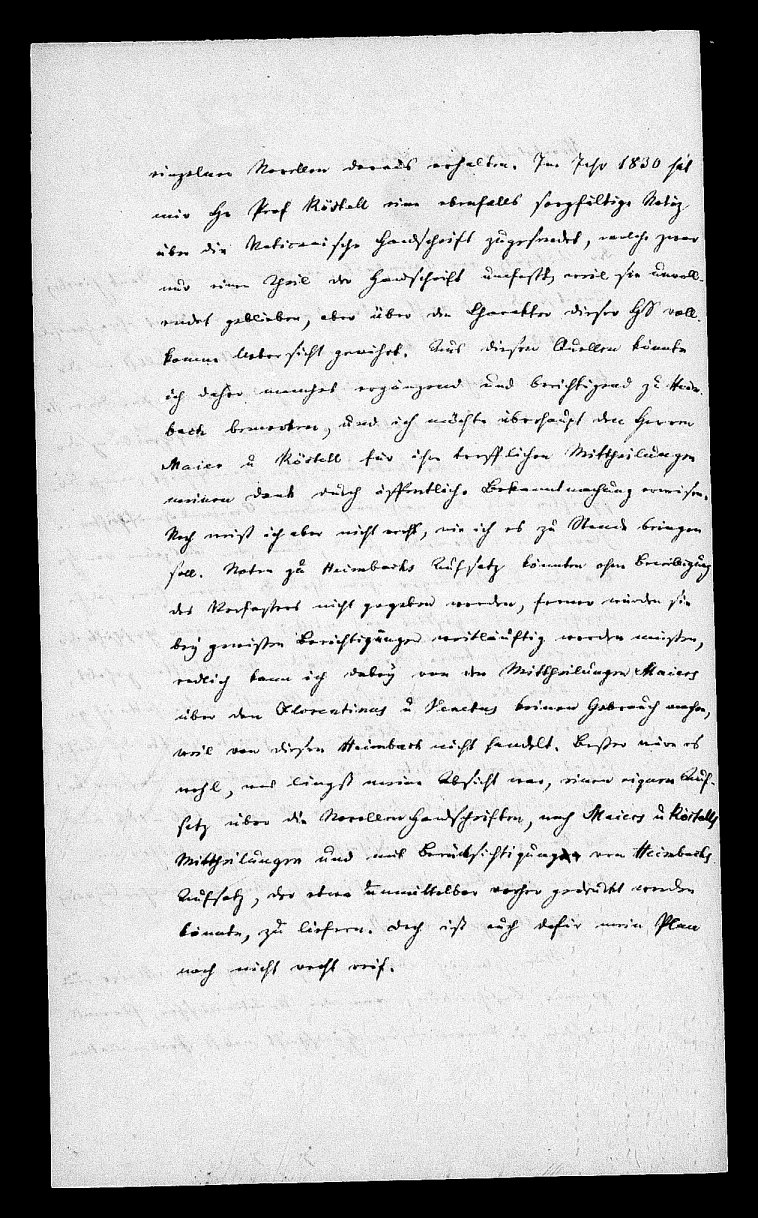 einzelnen Novellen daraus erhalten. Im Jahr 1830 hat
mir Hr Prof Röstell eine ebenfalls sorgfältige Notiz
über die Vaticanische Handschrift zugesendet, welche zwar
nur einen Theil der Handschrift umfaßt, weil sie unvoll-
endet geblieben, aber über den Charakter dieser HS voll-
komne Uebersicht gewährt. Aus diesen Quellen könnte
ich daher manches ergänzend und berichtigend zu Heim-
bach bemerken, und ich möchte überhaupt den Herren
Maier u Röstell für ihre trefflichen Mittheilungen
meinen Dank durch öffentliche Bekanntmachung erweisen.
Noch weiß ich aber nicht recht, wie ich es zu Stande bringen
soll. Noten zu Heimbachs Aufsatz könnten ohne Bewilligung
des Verfassers nicht gegeben werden, ferner würden sie
bey gewissen Berichtigungen weitläuftig werden müssen,
endlich kann ich dabey von den Mittheilungen Maiers
über den Florentinus u Venetus keinen Gebrauch machen,
weil von diesen Heimbach nicht handelt. Besser wäre es
wohl, was längst meine Absicht war, einen eignen Auf-
satz über die Novellen Handschriften, nach Maiers u Röstells
Mittheilungen und mit Berücksichtigung von Heimbachs
Aufsatz, der etwa unmittelbar vorher gedruckt werden
könnte, zu liefern. Doch ist auch dafür mein Plan
noch nicht recht reif.